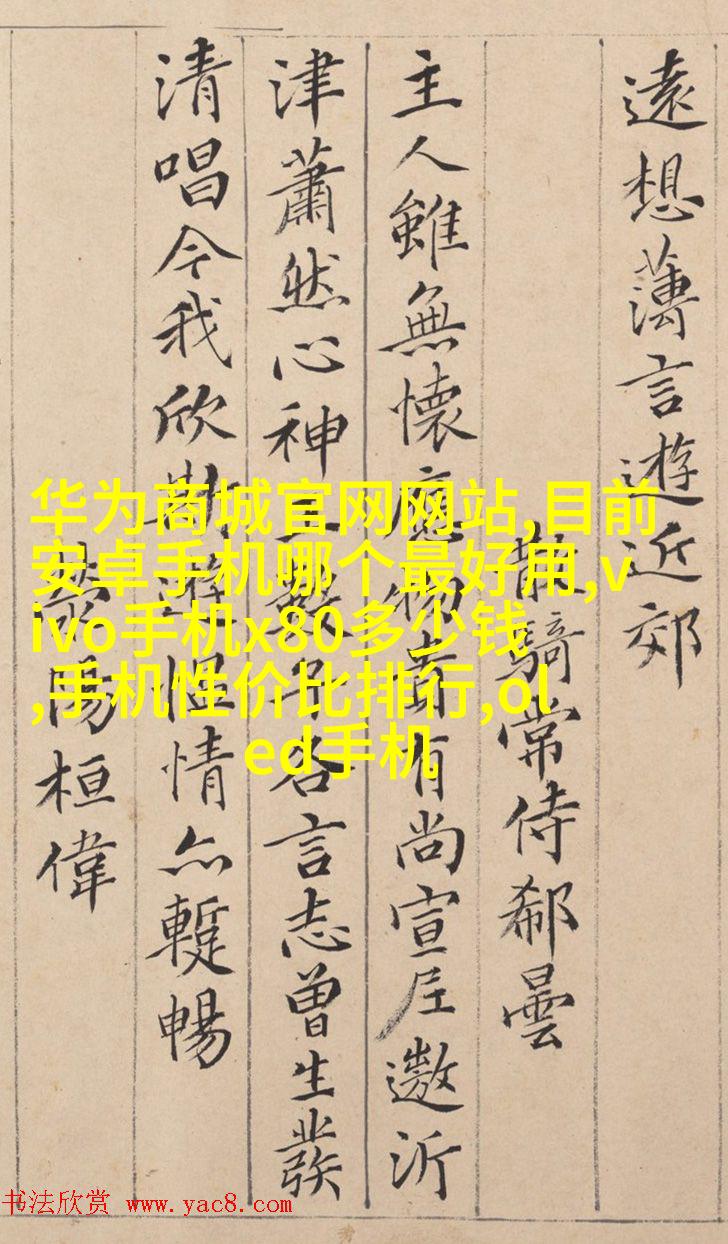 遠想薄言遊近郊
散騎常侍郗曇
主人雖無懷應物貴有尚宣尼遨沂
津蕭然心神王數子各言志曾生發
清唱今我欣斯遊慍情亦蹔暢
滎陽桓偉
华为商城官网网站,目前
安卓手机哪个最好用,v
ivo手机x80多少钱
,手机性价比排行,ol
ed手机
书法欣赏 www.yac8.com